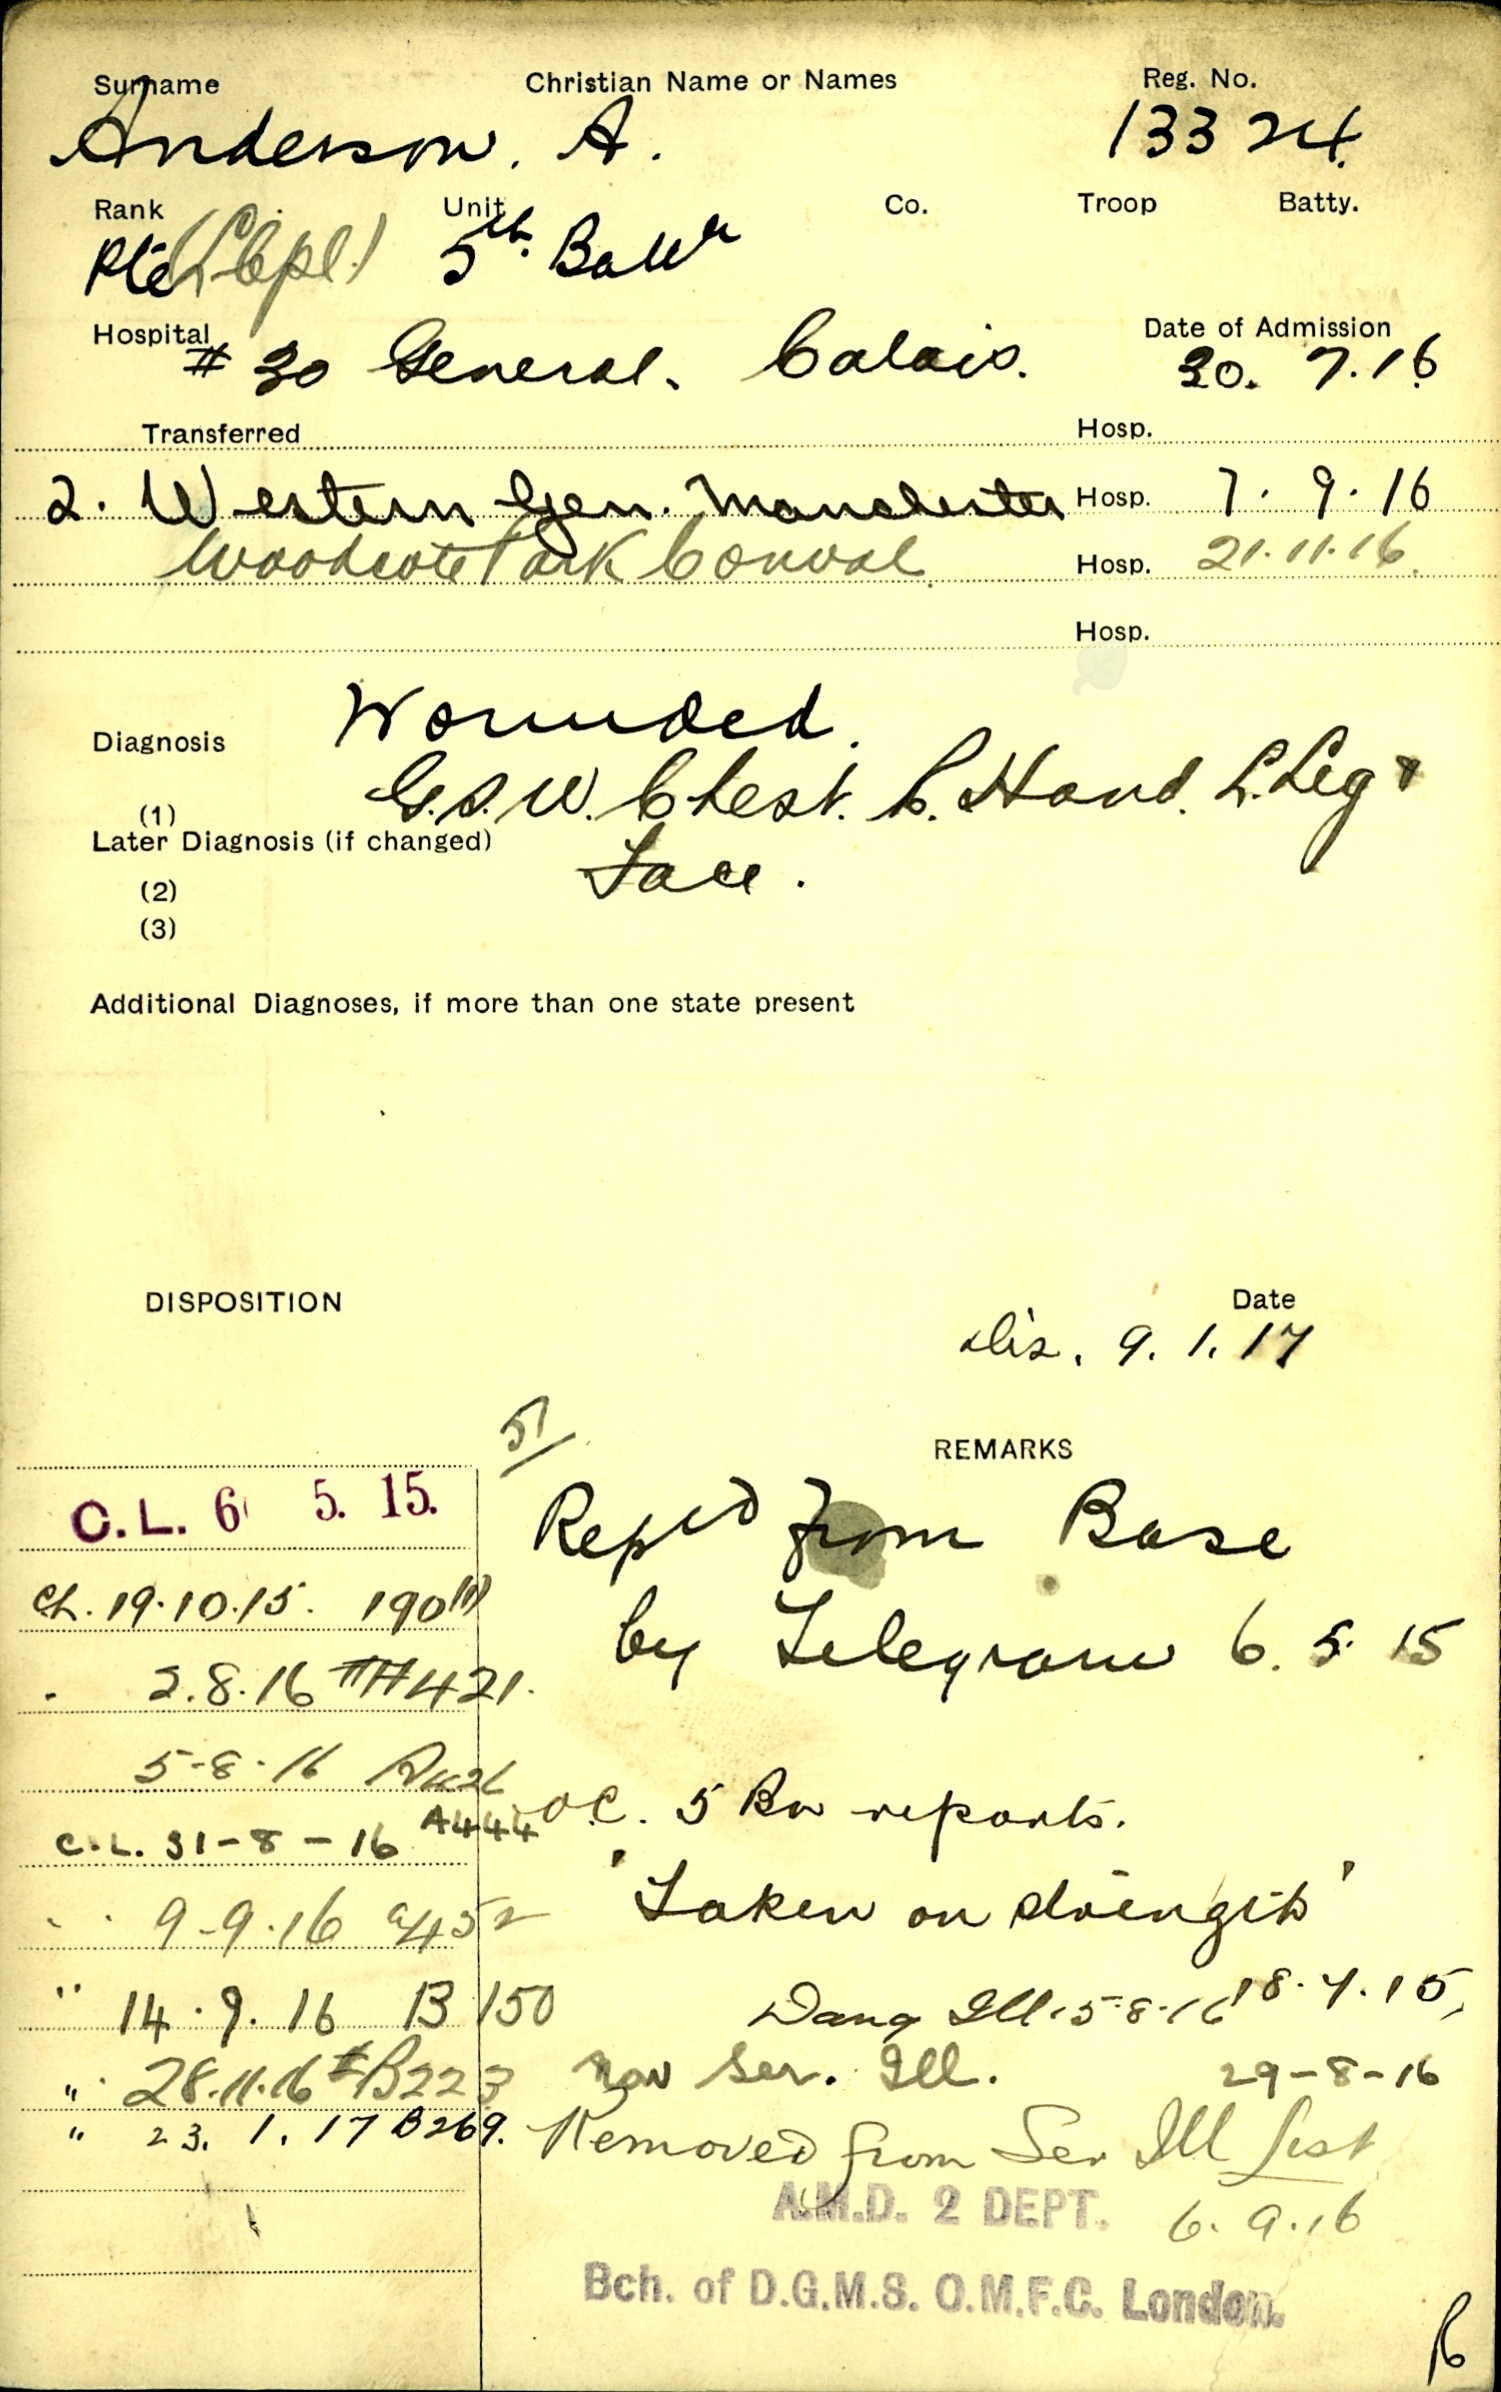 Surname Christian Name or Names Reg. No.
Anderson. A. 13324.
Rank Unit Co. Troop Batty.
Pte (L Cpl.) 5th. Battn
Hospital Date of Admission
# 30 General. Calais. 30. 7. 16
Transferred Hosp.
2. Western Gen. Manchester Hosp. 7. 9. 16
Woodcote Park Conval. Hosp. 21.11.16.
Hosp.
Diagnosis Wounded.
G.S.W. Chest. L. Hand. L. Leg +
(1)
Later Diagnosis (if changed)
Face.
(2)
(3)
Additional Diagnoses, if more than one state present
DISPOSITION Date
Dis. 9. 1. 17
51/
REMARKS
C.L. 6 5. 15.
Rep'td from Base
CL. 19.10.15. 190
by Telegram 6. 5. 15
" 2.8.16 421.
5-8-16 A426
O.C. 5 Bn reports.
C.L. 31-8-16 A444
'Taken on strength'
" " 9-9-16 A452
18.7.15,
" 14.9.16 B150
Dang Ill. 5.8.16
" 28.11.16 # B223
Now Ser. Ill. 29-8-16
" 23. 1. 17 B269.
Removed from Ser Ill List
A.M.D. 2 DEPT. 6.9.16
Bch. of D.G.M.S. O.M.F.C. London.